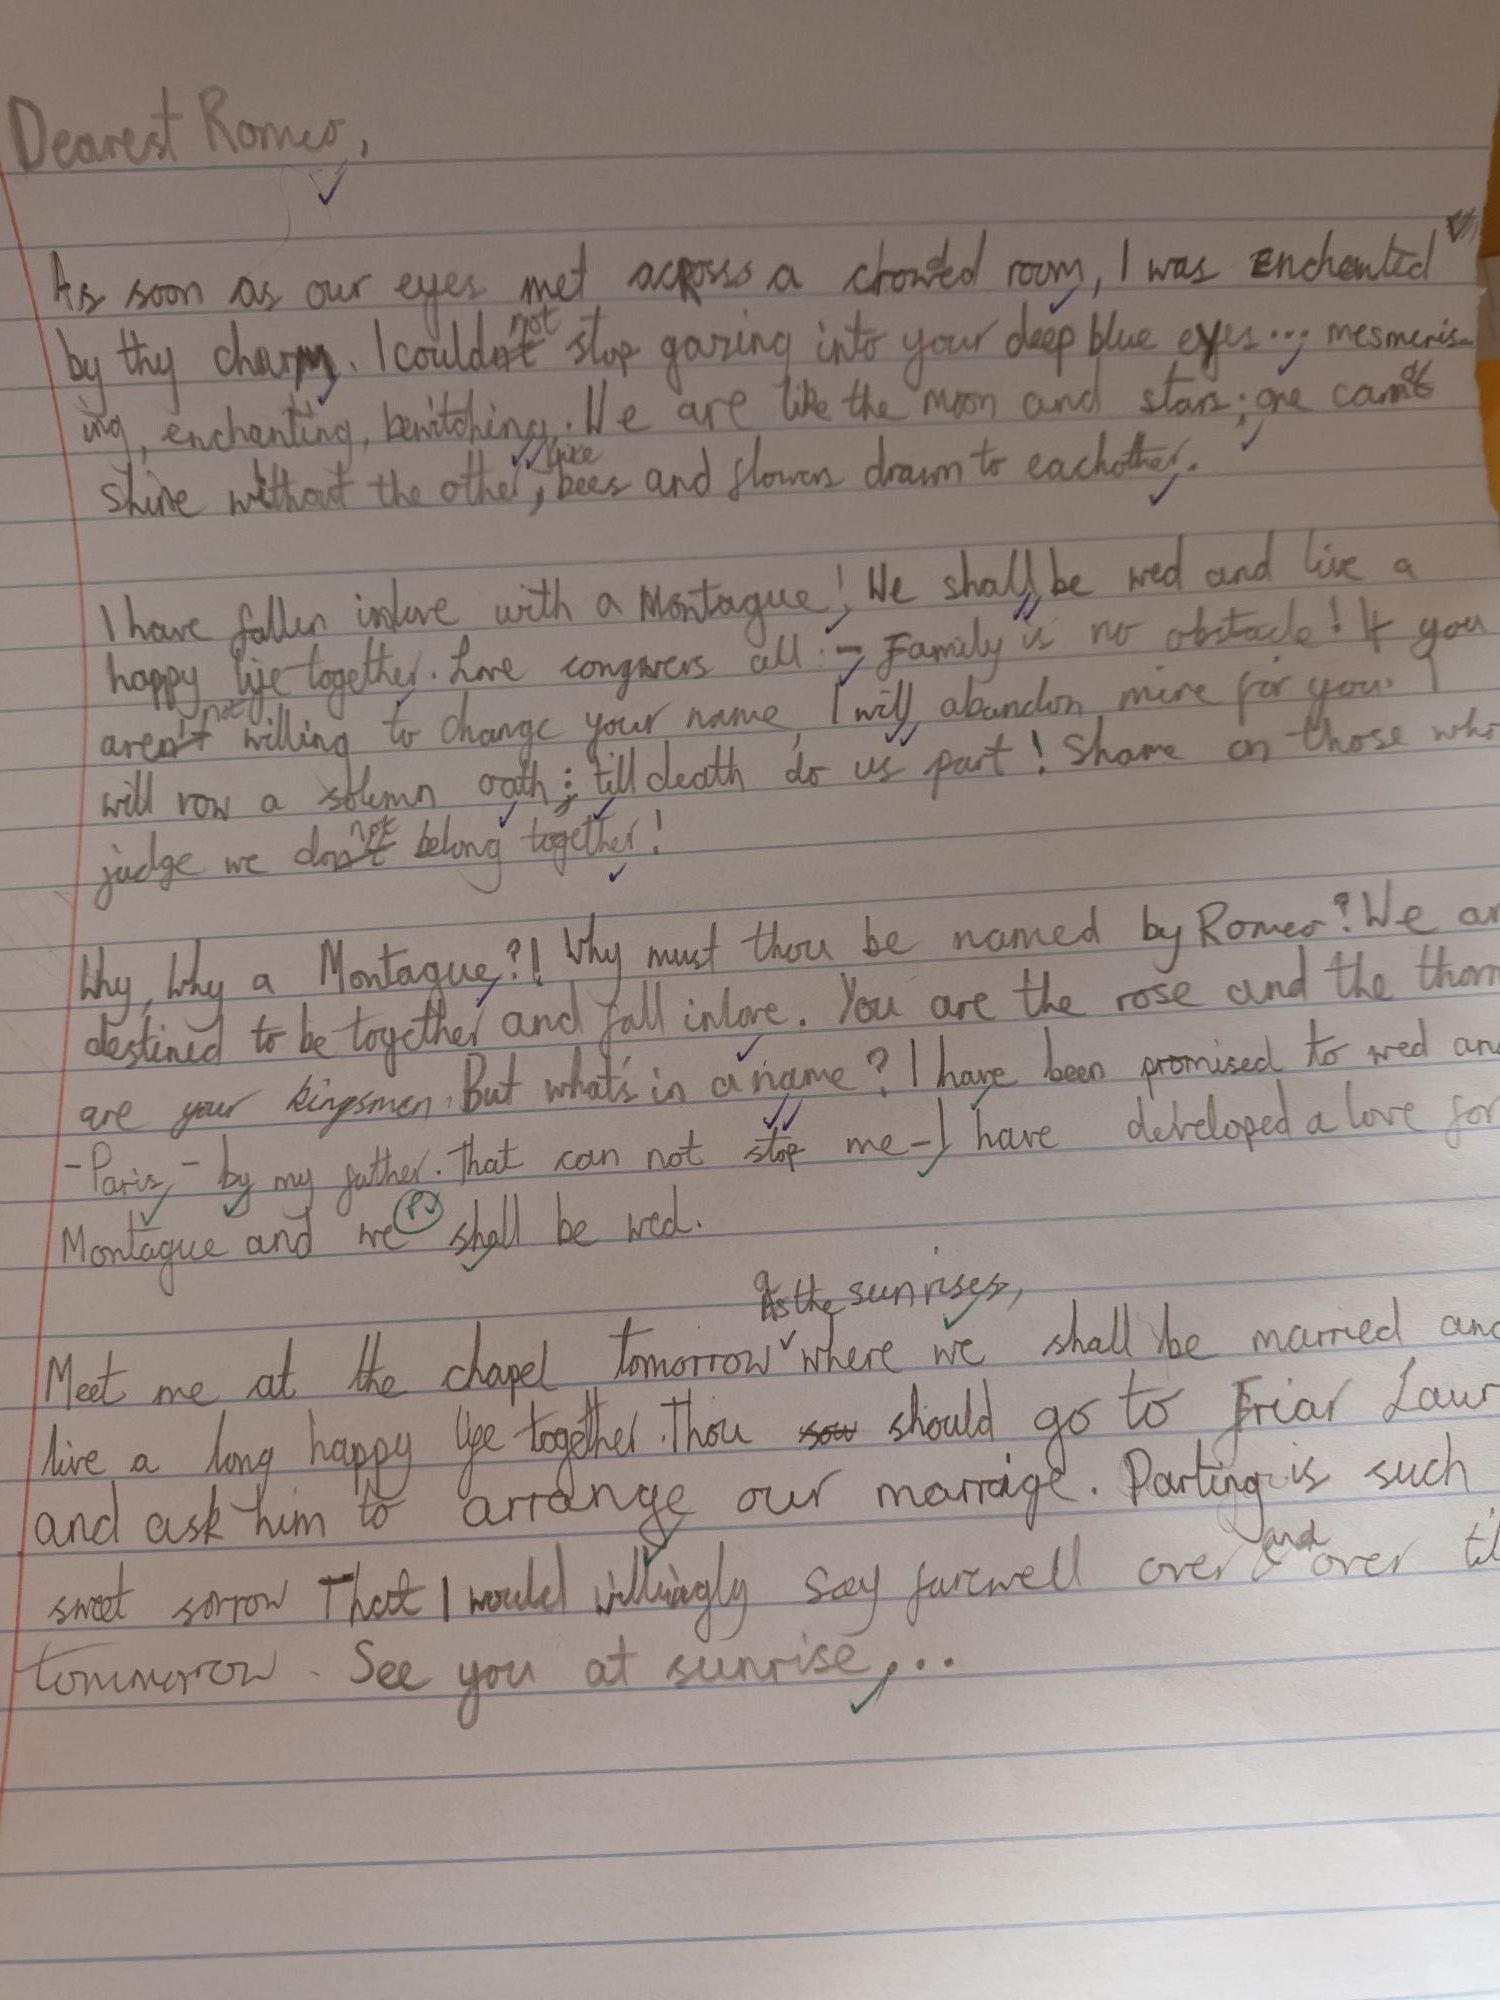 Dearest Romeo,
As soon as our eyes met across a crowded room, I was Enchanted
by thy charm. I could not stop gazing into your deep blue eyes... mesmeris-
ing, enchanting, bewitching. We are like the moon and stars; one cannot
shine without the other, like bees and flowers drawn to eachother.
I have fallen inlove with a Montague! We shall be wed and live a
happy life together. Love conqures all - Family is no obstacle! If you
are not willing to change your name, I will abandon mine for you. I
will vow a solemn oath; till death do us part! Shame on those who
judge we do not belong together!
Why, Why a Montague?! Why must thou be named by Romeo? We ar
destined to be together and fall inlove. You are the rose and the thorn
are your kingsmen. But what's in a name? I have been promised to wed an
-Paris,- by my father. That can not stop me - I have developed a love for
Montague and we shall be wed.
As the sunrises,
Meet me at the chapel tomorrow where we shall be married and
live a long happy life together. Thou should go to Friar Laur
and ask him to arrange our marraige. Parting is such
sweet sorrow That I would willingly say farewell over and over til
tommorrow. See you at sunrise,...